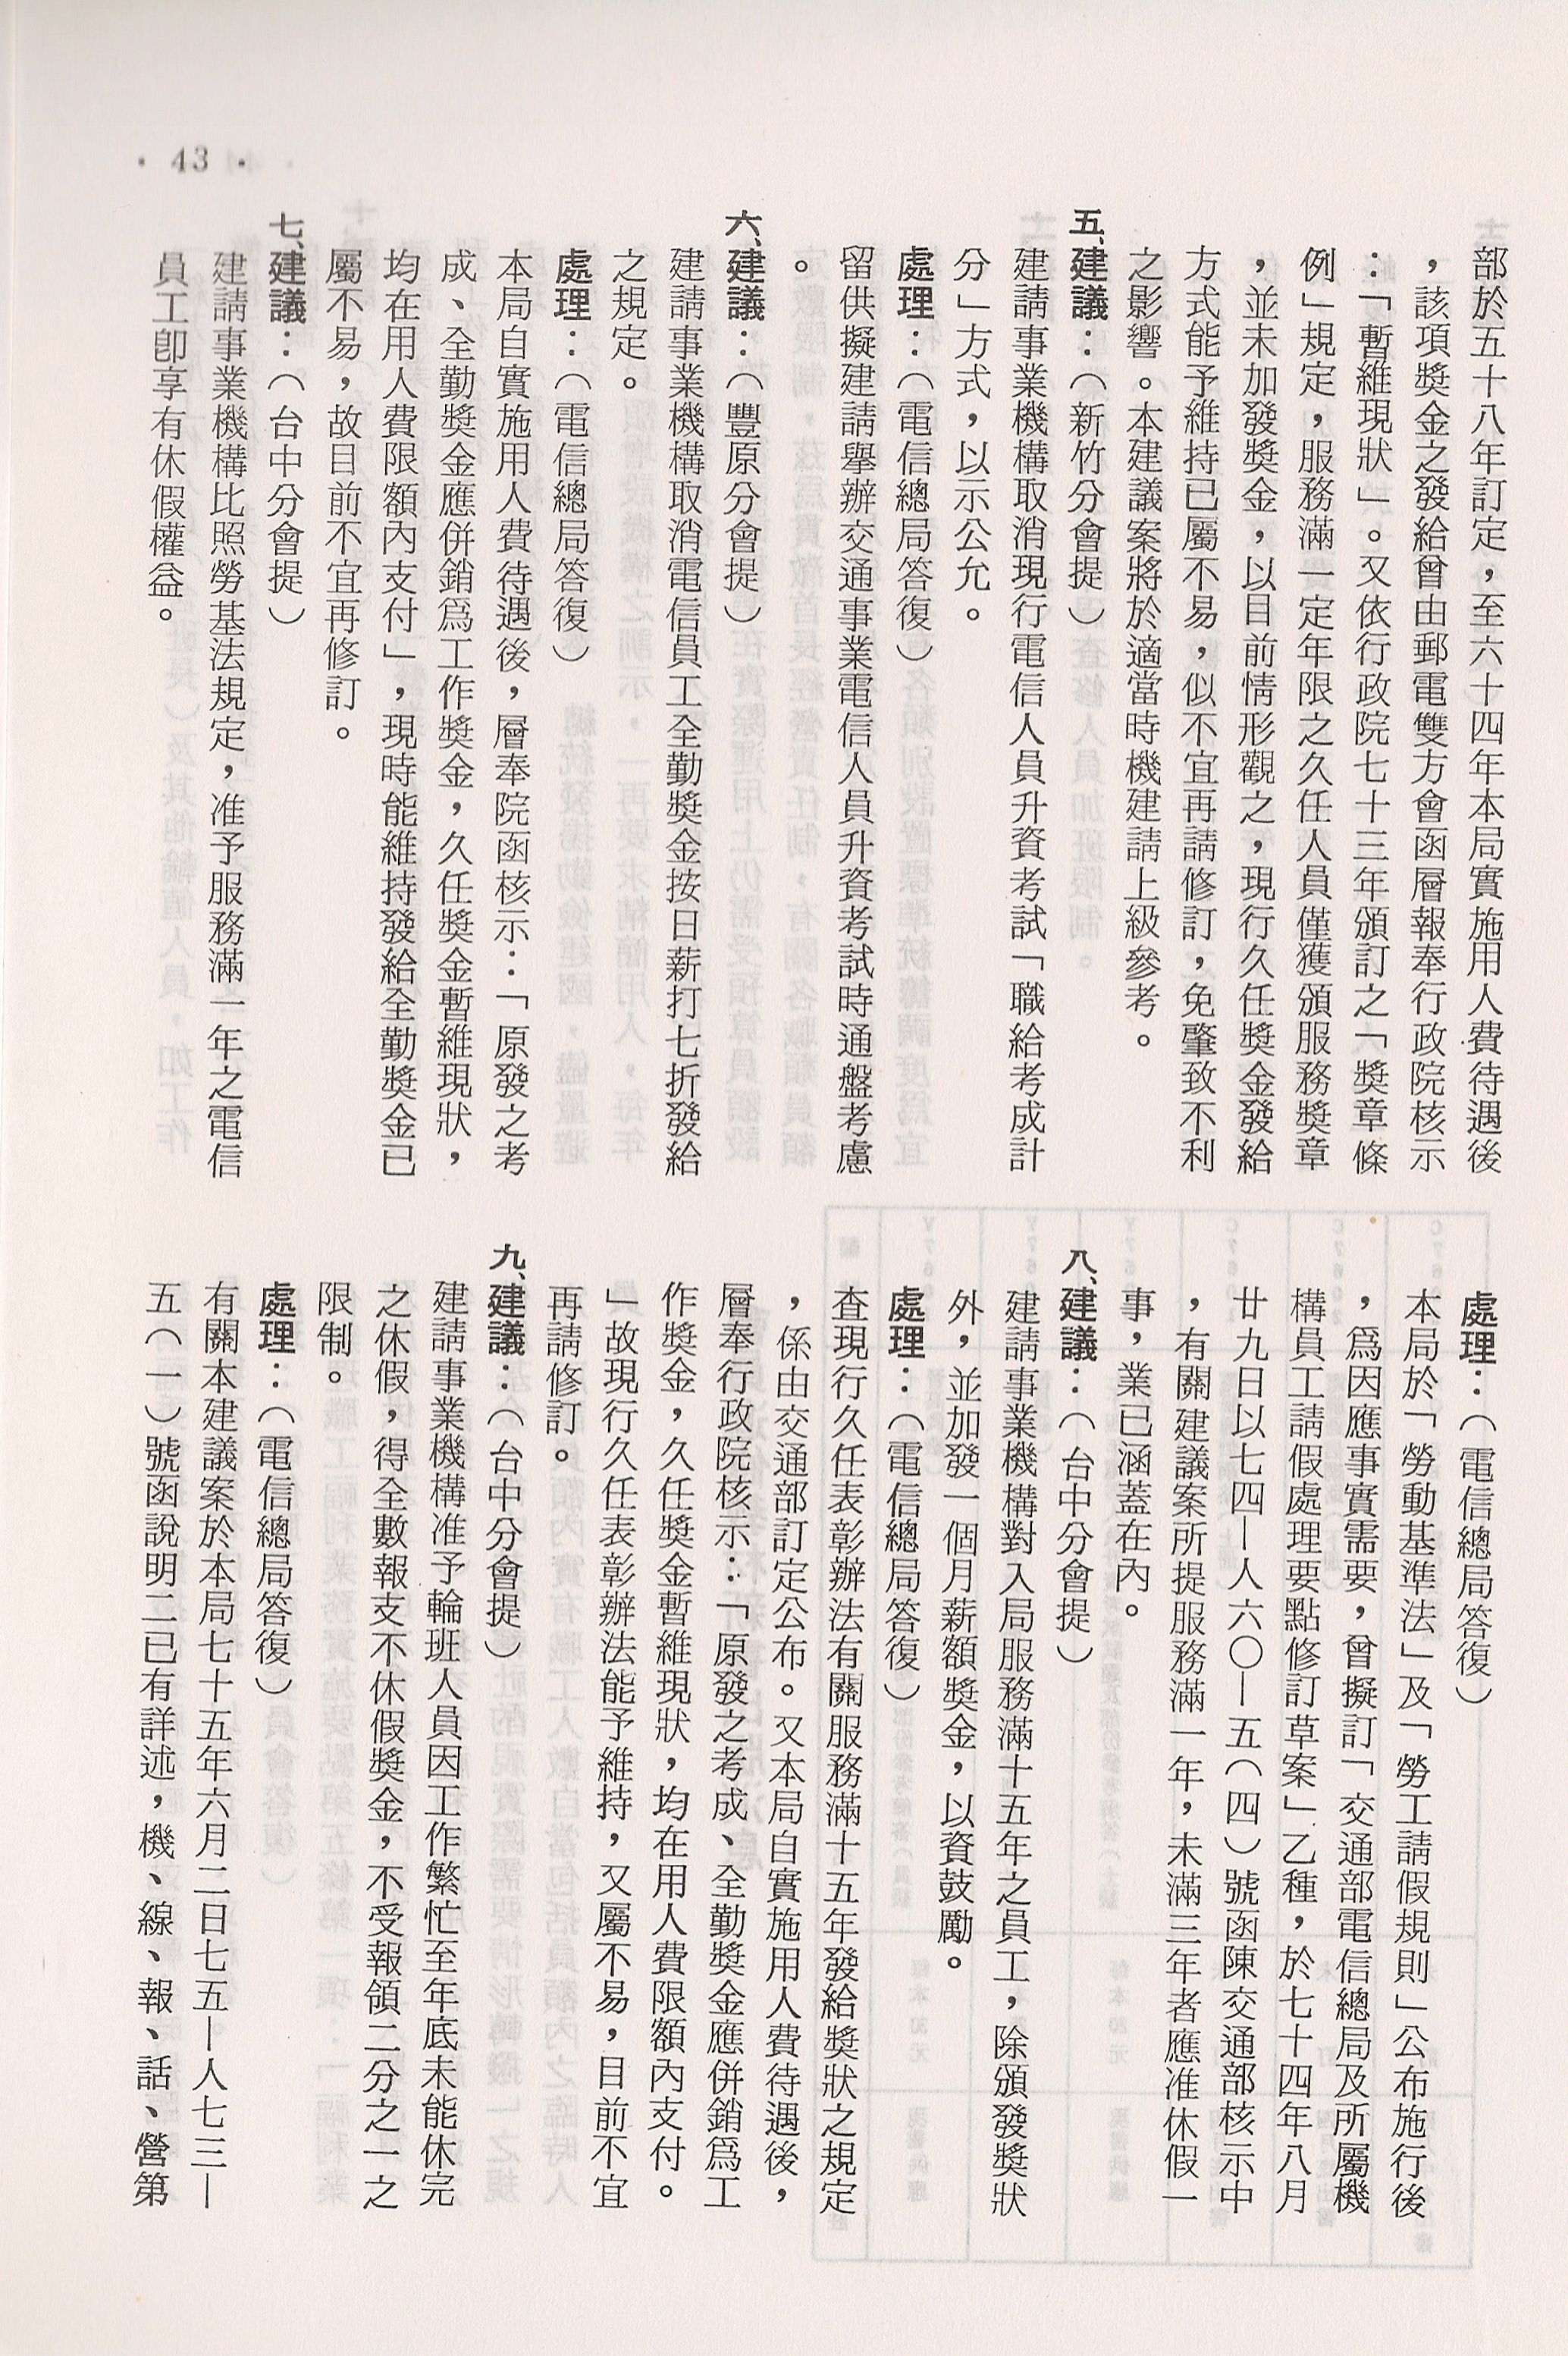 部於五十八年訂定，至六十四年本局實施用人費待遇後
，該項獎金之發給曾由郵電雙方會函層報奉行政院核示
：「暫維現狀」。又依行政院七十三年頒訂之「獎章條
例」規定，服務滿一定年限之久任人員僅獲頒服務獎章
，並未加發獎金，以目前情形觀之，現行久任獎金發給
方式能予維持已屬不易，似不宜再請修訂，免肇致不利
之影響。本建議案將於適當時機建請上級參考。
五、建議：（新竹分會提）
建請事業機構取消現行電信人員升資考試「職給考成計
分」方式，以示公允。
處理：（電信總局答復）
留供擬建請舉辦交通事業電信人員升資考試時通盤考慮
。
六、建議：（豐原分會提）
建請事業機構取消電信員工全勤獎金按日薪打七折發給
之規定。
處理：（電信總局答復）
本局自實施用人費待遇後，層奉院函核示：「原發之考
成、全勤獎金應併銷爲工作獎金，久任獎金暫維現狀，
均在用人費限額內支付」，現時能維持發給全勤獎金已
屬不易，故目前不宜再修訂。
七、建議：（台中分會提）
建請事業機構比照勞基法規定，准予服務滿一年之電信
員工卽享有休假權益。
處理：（電信總局答復）
本局於「勞動基準法」及「勞工請假規則」公布施行後
，爲因應事實需要，曾擬訂「交通部電信總局及所屬機
構員工請假處理要點修訂草案」乙種，於七十四年八月
廿九日以七四—人六〇—五（四）號函陳交通部核示中
，有關建議案所提服務滿一年，未滿三年者應准休假一
事，業已涵蓋在內。
八、建議：（台中分會提）
建請事業機構對入局服務滿十五年之員工，除頒發獎狀
外，並加發一個月薪額獎金，以資鼓勵。
處理：（電信總局答復）
查現行久任表彰辦法有關服務滿十五年發給獎狀之規定
，係由交通部訂定公布。又本局自實施用人費待遇後，
層奉行政院核示：「原發之考成、全勤獎金應併銷爲工
作獎金，久任獎金暫維現狀，均在用人費限額內支付。
」故現行久任表彰辦法能予維持，又屬不易，目前不宜
再請修訂。
九、建議：（台中分會提）
建請事業機構准予輪班人員因工作繁忙至年底未能休完
之休假，得全數報支不休假獎金，不受報領二分之一之
限制。
處理：（電信總局答復）
有關本建議案於本局七十五年六月二日七五—人七三—
五（一）號函說明二已有詳述，機、線、報、話、營第
• 43 •